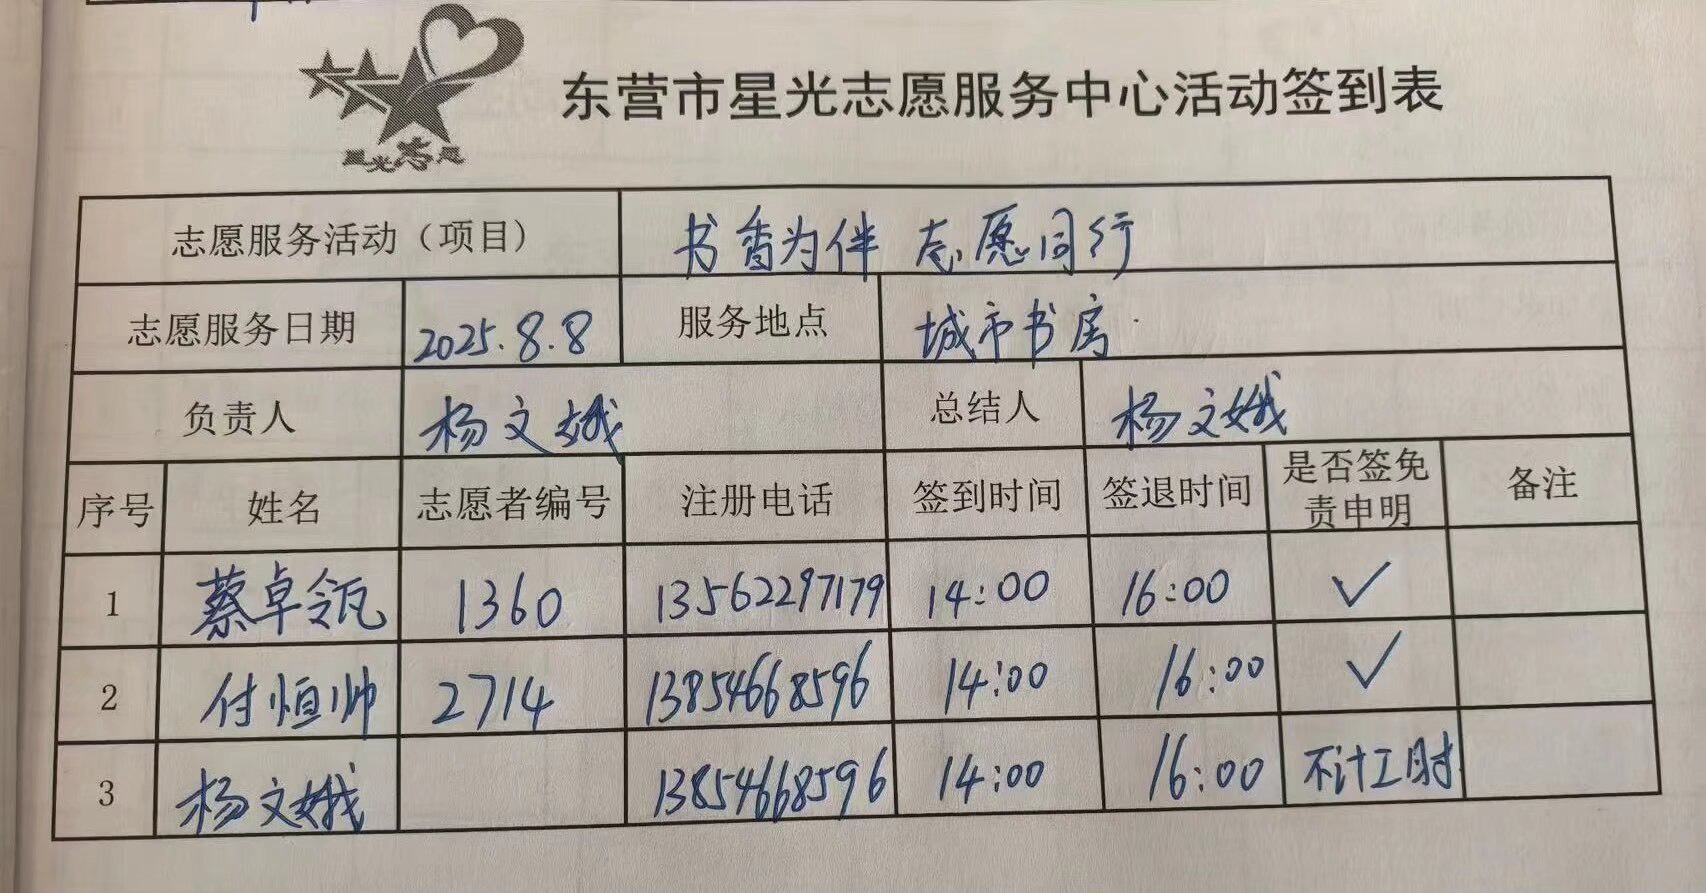 星光志愿
东营市星光志愿服务中心活动签到表
志愿服务活动（项目） 书香为伴 志愿同行
志愿服务日期 2025.8.8 服务地点 城市书房
负责人 杨文娥 总结人 杨文娥
序号 姓名 志愿者编号 注册电话 签到时间 签退时间 是否签免责申明 备注
1 蔡卓瓴 1360 13562297179 14:00 16:00 ✓
2 付恒帅 2714 13854668596 14:00 16:00 ✓
3 杨文娥 13854668596 14:00 16:00 不计工时